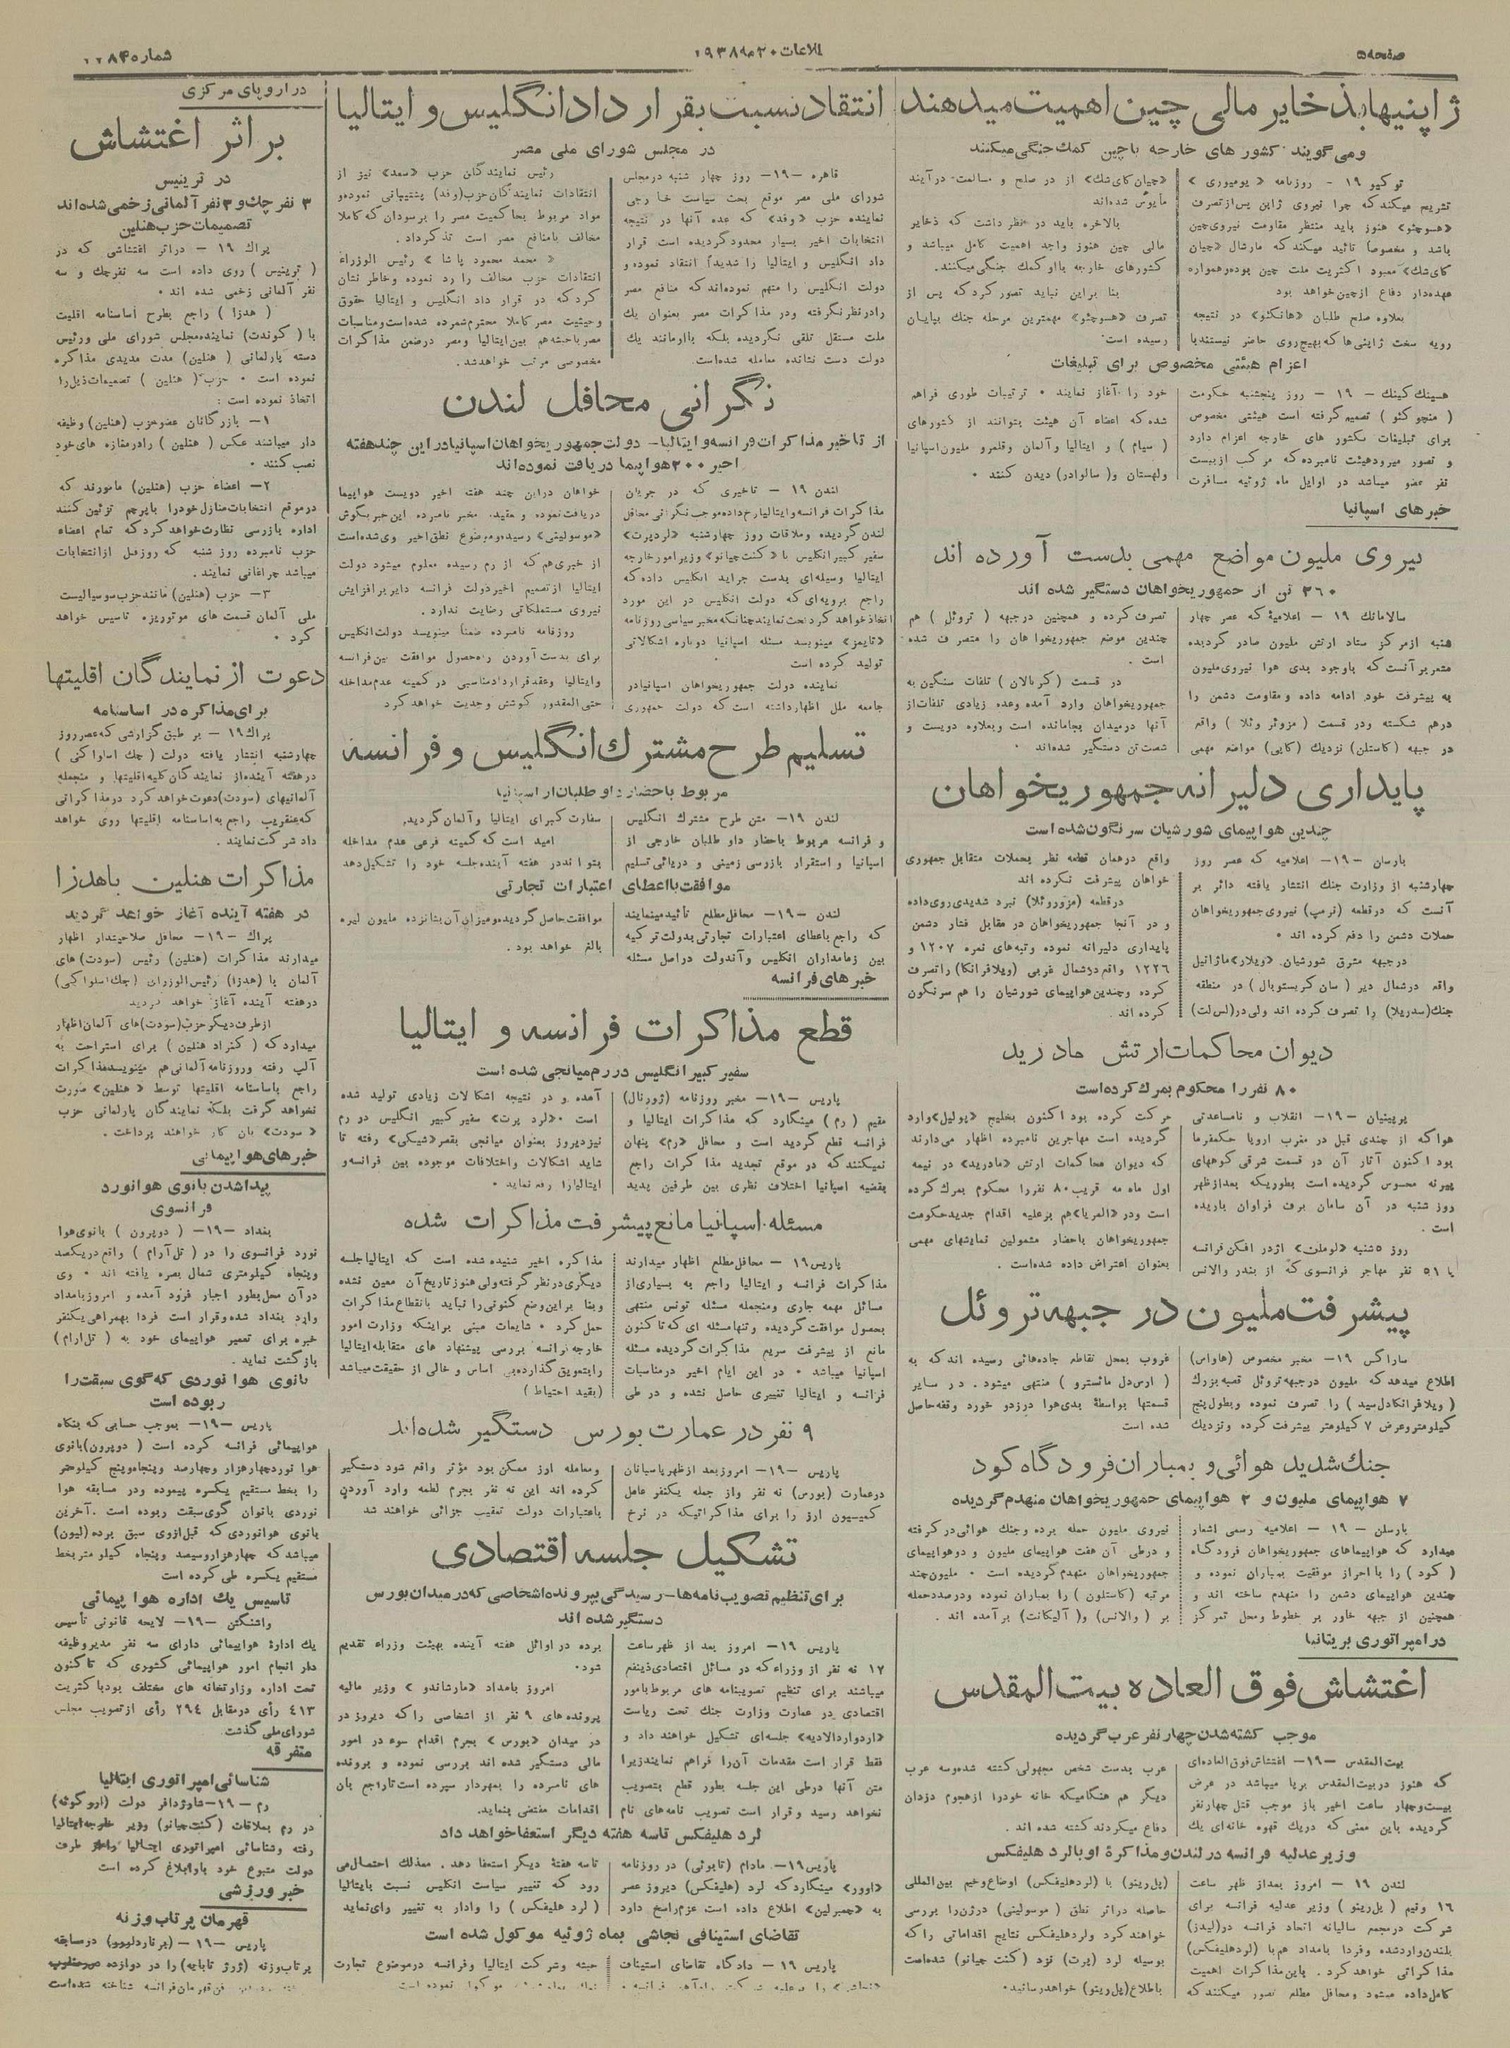 صفحه ۵
اطلاعات ۲۰ مه ۱۹۳۸
شماره ۱۱۸۴
ژاپنیها بذخایر مالی چین اهمیت میدهند
ومی گویند کشور های خارجه باچین کمک جنگی میکنند
توکیو ۱۹ - روزنامه «یومیوری»
تشریح میکند که چرا نیروی ژاپن پس از تصرف
«هسوچئو» هنوز باید منتظر مقاومت نیروی چین
باشد و مخصوصاً تائید میکند که مارشال «چیان
کای شك» معبود اکثریت ملت چین بوده و همواره
عهده دار دفاع از چین خواهد بود
بعلاوه صلح طلبان «هانکئو» در نتیجه
رویه سخت ژاپنی ها که بهیچ روی حاضر نیستند با
«چیان کای شك» از در صلح و مسالمت در آیند
مأیوس شده اند
بالاخره باید در نظر داشت که ذخایر
مالی چین هنوز واجد اهمیت کامل میباشد و
کشورهای خارجه با او کمك جنگی میکنند.
بنا براین نباید تصور کرد که پس از
تصرف «هسوچئو» مهمترین مرحله جنك بپایان
رسیده است.
اعزام هیئتی مخصوص برای تبلیغات
هسینك کینك - ۱۹ - روز پنجشنبه حکومت
(منچوکئو) تصمیم گرفته است هیئتی مخصوص
برای تبلیغات بکشور های خارجه اعزام دارد
و تصور میرود هیئت نامبرده که مرکب از بیست
نفر عضو میباشد در اوایل ماه ژوئیه مسافرت
خود را آغاز نمایند • ترتیبات طوری فراهم
شده که اعضاء آن هیئت بتوانند از کشورهای
(سیام) و ایتالیا و آلمان و قلمرو ملیون اسپانیا
ولهستان و (سالوادر) دیدن کنند •
خبرهای اسپانیا
نیروی ملیون مواضع مهمی بدست آورده اند
۳۶۰ تن از جمهوریخواهان دستگیر شده اند
سالامانك ۱۹ - اعلامیهٔ که عصر چهار
شنبه از مرکز ستاد ارتش ملیون صادر گردیده
مشعر بر آنست که باوجود بدی هوا نیروی ملیون
به پیشرفت خود ادامه داده و مقاومت دشمن را
درهم شکسته و در قسمت (مزوئر وئلا) واقع
در جبهه (کاستلن) نزدیك (کابی) مواضع مهمی
تصرف کرده و همچنین در جبهه (تروئل) هم
چندین موضع جمهوریخواهان را متصرف شده
است.
در قسمت (کربالان) تلفات سنگین به
جمهوریخواهان وارد آمده و عده زیادی تلفات از
آنها در میدان بجامانده است و بعلاوه دویست و
شصت تن دستگیر شده اند •
پایداری دلیرانه جمهوریخواهان
چندین هواپیمای شورشیان سرنگون شده است
بارسلن - ۱۹ - اعلامیه که عصر روز
چهارشنبه از وزارت جنك انتشار یافته دائر بر
آنست که در قطعه (ترمپ) نیروی جمهوریخواهان
حملات دشمن را دفع کرده اند •
در جبهه شرق شورشیان «ویلار» ماژانیل
واقع در شمال دیر (سان کریستوبال) در منطقه
جنك (سدریلا) را تصرف کرده اند ولی در (لس لت)
واقع در همان قطعه نظر بحملات متقابل جمهوری
خواهان پیشرفت نکرده اند
در قطعه (مزوروئلا) نبرد شدیدی روی داده
و در آنجا جمهوریخواهان در مقابل فشار دشمن
پایداری دلیرانه نموده و تپه های نمره ۱۲۰۷ و
۱۲۲۶ واقع در شمال غربی (ویلافرانکا) را تصرف
کرده و چندین هواپیمای شورشیان را هم سرنگون
کرده اند.
دیوان محاکمات ارتش مادرید
۸۰ نفر را محکوم بمرك کرده است
پرپینیان - ۱۹ - انقلاب و نامساعدتی
هوا که از چندی قبل در مغرب اروپا حکمفرما
بود اکنون آثار آن در قسمت شرقی کوههای
پیرنه محسوس گردیده است بطوریکه بعد از ظهر
روز شنبه در آن سامان برف فراوان باریده
است.
روز ۵ شنبه «لوملن» اژدر افکن فرانسه
با ۵۱ نفر مهاجر فرانسوی که از بندر والانس
حرکت کرده بود اکنون بخلیج «پولیل» وارد
گردیده است مهاجرین نامبرده اظهار می دارند
که دیوان محاکمات ارتش «مادرید» در نیمه
اول ماه مه قریب ۸۰ نفر را محکوم بمرك کرده
است و در «المریا» هم بر علیه اقدام جدید حکومت
جمهوریخواهان باحضار مشمولین نمایشهای مهمی
بعنوان اعتراض داده شده است.
پیشرفت ملیون در جبهه تروئل
ساراگس ۱۹ - مخبر مخصوص (هاواس)
اطلاع میدهد که ملیون در جبهه تروئل قصبه بزرك
(ویلافرانکا دل سید) را تصرف نموده و بطول پنج
کیلومتر و عرض ۷ کیلومتر پیشرفت کرده و نزدیك
غروب بمحل تقاطع جاده هائی رسیده اند که به
(ارس دل مائسترو) منتهی میشود. در سایر
قسمتها بواسطهٔ بدی هوا در زد و خورد وقفه حاصل
شده است
جنك شدید هوائی و بمباران فرودگاه کود
۷ هواپیمای ملیون و ۲ هواپیمای جمهوریخواهان منهدم گردیده
بارسلن - ۱۹ - اعلامیه رسمی اشعار
میدارد که هواپیماهای جمهوریخواهان فرودگاه
(کود) را با احراز موفقیت بمباران نموده و
چندین هواپیمای دشمن را منهدم ساخته اند و
همچنین از جبهه خاور بر خطوط و محل تمرکز
نیروی ملیون حمله برده و جنك هوائی در گرفته
و در طی آن هفت هواپیمای ملیون و دو هواپیمای
جمهوریخواهان منهدم گردیده است • ملیون چند
مرتبه (کاستلون) را بمباران نموده و در صدد حمله
بر (والانس) و (آلیکانت) بر آمده اند.
در امپراتوری بریتانیا
اغتشاش فوق العاده بیت المقدس
موجب کشته شدن چهار نفر عرب گردیده
بیت المقدس - ۱۹ - اغتشاش فوق العاده ای
که هنوز در بیت المقدس برپا میباشد در عرض
بیست و چهار ساعت اخیر باز موجب قتل چهار نفر
گردیده باین معنی که در یك قهوه خانه ای یك
عرب بدست شخص مجهولی کشته شده و سه عرب
دیگر هم هنگامیکه خانه خود را از هجوم دزدان
دفاع میکردند کشته شده اند.
وزیر عدلیه فرانسه در لندن و مذاکرهٔ او با لرد هلیفکس
لندن ۱۹ - امروز بعد از ظهر ساعت
۱۶ و نیم (پل رینو) وزیر عدلیه فرانسه برای
شرکت در مجمع سالیانه اتحاد فرانسه در (لیدز)
بلندن وارد شده و فردا بامداد هم با (لرد هلیفکس)
مذاکراتی خواهد کرد. باین مذاکرات اهمیت
کامل داده میشود و محافل مطلع تصور میکنند که
(پل رینو) با (لرد هلیفکس) اوضاع وخیم بین المللی
حاصله در اثر نطق (موسولینی) در ژن را بررسی
خواهند کرد و لرد هلیفکس نتایج اقداماتی را که
بوسیله لرد (پرت) نزد (کنت چیانو) شده است
باطلاع (پل رینو) خواهد رسانید.
انتقاد نسبت بقرار داد انگلیس و ایتالیا
در مجلس شورای ملی مصر
قاهره - ۱۹ - روز چهار شنبه در مجلس
شورای ملی مصر موقع بحث سیاست خارجی
نماینده حزب «وفد» که عده آنها در نتیجه
انتخابات اخیر بسیار محدود گردیده است قرار
داد انگلیس و ایتالیا را شدیداً انتقاد نموده و
دولت انگلیس را متهم نموده اند که منافع مصر
را در نظر نگرفته و در مذاکرات مصر بعنوان یك
ملت مستقل تلقی نگردیده بلکه با او مانند یك
دولت دست نشانده معامله شده است.
رئیس نمایندگان حزب «سعد» نیز از
انتقادات نمایندگان حزب (وفد) پشتیبانی نموده و
مواد مربوط بحاکمیت مصر را بر سودان که کاملا
مخالف با منافع مصر است تذکر داد.
«محمد محمود پاشا» رئیس الوزراء
انتقادات حزب مخالف را رد نموده و خاطر نشان
کرد که در قرار داد انگلیس و ایتالیا حقوق
و حیثیت مصر کاملا محترم شمرده شده است و مناسبات
مصر با حبشه هم بین ایتالیا و مصر در ضمن مذاکرات
مخصوصی مرتب خواهد شد.
نگرانی محافل لندن
از تأخیر مذاکرات فرانسه و ایتالیا - دولت جمهوریخواهان اسپانیا در این چند هفته
اخیر ۲۰۰ هواپیما دریافت نموده اند
لندن ۱۹ - تأخیری که در جریان
مذاکرات فرانسه و ایتالیا رخ داده موجب نگرانی محافل
لندن گردیده و ملاقات روز چهارشنبه «لرد پرت»
سفیر کبیر انگلیس با «کنت چیانو» وزیر امور خارجه
ایتالیا وسیله ای بدست جراید انگلیس داده که
راجع برویه ای که دولت انگلیس در این مورد
اتخاذ خواهد کرد بحث نمایند چنانکه مخبر سیاسی روزنامه
«تایمز» مینویسد مسئله اسپانیا دوباره اشکالاتی
تولید کرده است
نماینده دولت جمهوریخواهان اسپانیا در
جامعه ملل اظهار داشته است که دولت جمهوری
خواهان در این چند هفته اخیر دویست هواپیما
دریافت نموده و بعقیده مخبر نامبرده این خبر بگوش
«موسولینی» رسیده و موضوع نطق اخیر وی شده است
از خبری هم که از رم رسیده معلوم میشود دولت
ایتالیا از تصمیم اخیر دولت فرانسه دایر بر افزایش
نیروی مستملکاتی رضایت ندارد.
روزنامه نامبرده ضمناً مینویسد دولت انگلیس
برای بدست آوردن راه حصول موافقت بین فرانسه
و ایتالیا و عقد قرارداد مناسبی در کمیته عدم مداخله
حتی المقدور کوشش و جدیت خواهد کرد
تسلیم طرح مشترك انگلیس و فرانسه
مربوط باحضار داوطلبان از اسپانیا
لندن ۱۹ - متن طرح مشترك انگلیس
و فرانسه مربوط باحضار داو طلبان خارجی از
اسپانیا و استقرار بازرسی زمینی و دریائی تسلیم
سفارت کبرای ایتالیا و آلمان گردید.
امید است که کمیته فرعی عدم مداخله
بتواند در هفته آینده جلسه خود را تشکیل دهد
موافقت با اعطای اعتبارات تجارتی
لندن - ۱۹ - محافل مطلع تأئید مینمایند
که راجع باعطای اعتبارات تجارتی بدولت ترکیه
بین زمامداران انگلیس و آندولت در اصل مسئله
موافقت حاصل گردیده و میزان آن بشانزده ملیون لیره
بالغ خواهد بود.
خبرهای فرانسه
قطع مذاکرات فرانسه و ایتالیا
سفیر کبیر انگلیس در رم میانجی شده است
پاریس - ۱۹ - مخبر روزنامه (ژورنال)
مقیم (رم) مینگارد که مذاکرات ایتالیا و
فرانسه قطع گردید است و محافل «رم» پنهان
نمیکنند که در موقع تجدید مذاکرات راجع
بقضیه اسپانیا اختلاف نظری بین طرفین پدید
آمده و در نتیجه اشکالات زیادی تولید شده
است • «لرد پرت» سفیر کبیر انگلیس در رم
نیز دیروز بعنوان میانجی بقصر «شیکی» رفته تا
شاید اشکالات و اختلافات موجوده بین فرانسه و
ایتالیا را رفع نماید •
مسئله اسپانیا مانع پیشرفت مذاکرات شده
پاریس ۱۹ - محافل مطلع اظهار میدارند
مذاکرات فرانسه و ایتالیا راجع به بسیاری از
مسائل مهمه جاری و منجمله مسئله تونس منتهی
بحصول موافقت گردیده و تنها مسئله ای که تا کنون
مانع از پیشرفت سریع مذاکرات گردیده مسئله
اسپانیا میباشد • در این ایام اخیر در مناسبات
فرانسه و ایتالیا تغییری حاصل نشده و در طی
مذاکره اخیر شنیده شده است که ایتالیا جلسه
دیگری در نظر گرفته ولی هنوز تاریخ آن معین نشده
و بنا بر این وضع کنونی را نباید بانقطاع مذاکرات
حمل کرد • شایعات مبنی بر اینکه وزارت امور
خارجه فرانسه بررسی پیشنهاد های متقابله ایتالیا
را بتعویق گذارده بی اساس و خالی از حقیقت میباشد
(بقید احتیاط)
۹ نفر در عمارت بورس دستگیر شده اند
پاریس - ۱۹ - امروز بعد از ظهر پاسبانان
در عمارت (بورس) نه نفر و از جمله یکنفر عامل
کمیسیون ارز را برای مذاکراتیکه در نرخ
و معامله ارز ممکن بود مؤثر واقع شود دستگیر
کرده اند این نه نفر بجرم لطمه وارد آوردن
باعتبارات دولت تعقیب جزائی خواهند شد
تشکیل جلسه اقتصادی
برای تنظیم تصویب نامه ها - رسیدگی بپرونده اشخاصی که در میدان بورس
دستگیر شده اند
پاریس ۱۹ - امروز بعد از ظهر ساعت
۱۷ نه نفر از وزراء که در مسائل اقتصادی ذینفع
میباشند برای تنظیم تصویبنامه های مربوط بامور
اقتصادی در عمارت وزارت جنك تحت ریاست
«ادوارد الادیه» جلسه ای تشکیل خواهند داد و
فقط قرار است مقدمات آن را فراهم نمایند زیرا
متن آنها در طی این جلسه بطور قطع بتصویب
نخواهد رسید و قرار است تصویب نامه های نام
برده در اوائل هفته آینده بهیئت وزراء تقدیم
شود.
امروز بامداد «مارشاندو» وزیر مالیه
پرونده های ۹ نفر از اشخاصی را که دیروز در
در میدان «بورس» بجرم اقدام سوء در امور
مالی دستگیر شده اند بررسی نموده و پرونده
های نامبرده را بمهردار سپرده است تا راجع بآن
اقدامات مقتضی بنماید.
لرد هلیفکس تا سه هفته دیگر استعفا خواهد داد
پاریس ۱۹ - مادام (تابوئی) در روزنامه
«اوور» مینگارد که لرد (هلیفکس) دیروز عصر
به «چمبرلین» اطلاع داده است عزم راسخ دارد
تا سه هفتهٔ دیگر استعفا دهد. معذلك احتمال می
رود که تغییر سیاست انگلیس نسبت بایتالیا
(لرد هلیفکس) را وادار به تغییر رای نماید
تقاضای استینافی نجاشی بماه ژوئیه موکول شده است
پاریس ۱۹ - دادگاه تقاضای استیناف
حبشه و شرکت ایتالیا و فرانسه در موضوع تجارت
در اروپای مرکزی
بر اثر اغتشاش
در ترپنیس
۳ نفر چك و ۳ نفر آلمانی زخمی شده اند
تصمیمات حزب هنلین
پراك ۱۹ - در اثر اغتشاشی که در
(ترپنیس) روی داده است سه نفر چك و سه
نفر آلمانی زخمی شده اند •
(هدزا) راجع بطرح اساسنامه اقلیت
با (کوندت) نماینده مجلس شورای ملی و رئیس
دسته پارلمانی (هنلین) مدت مدیدی مذاکره
نموده است • حزب (هنلین) تصمیمات ذیل را
اتخاذ نموده است:
۱ - بازرگانان عضو حزب (هنلین) وظیفه
دار میباشند عکس (هنلین) را در مغازه های خود
نصب کنند •
۲ - اعضاء حزب (هنلین) مامورند که
در موقع انتخابات منازل خود را با پرچم تزئین کنند
اداره بازرسی نظارت خواهد کرد که تمام اعضاء
حزب نامبرده روز شنبه که روز قبل از انتخابات
میباشد چراغانی نمایند.
۳ - حزب (هنلین) مانند حزب سوسیالیست
ملی آلمان قسمت های موتوریزه تاسیس خواهد
کرد •
دعوت از نمایندگان اقلیتها
برای مذاکره در اساسنامه
پراك ۱۹ - بر طبق گزارشی که عصر روز
چهارشنبه انتشار یافته دولت (چك اسلواکی)
در هفته آینده از نمایندگان کلیه اقلیتها و منجمله
آلمانیهای (سودت) دعوت خواهد کرد در مذاکراتی
که عنقریب راجع به اساسنامه اقلیتها روی خواهد
داد شرکت نمایند.
مذاکرات هنلین با هدزا
در هفته آینده آغاز خواهد گردید
پراك - ۱۹ - محافل صلاحیتدار اظهار
میدارند مذاکرات (هنلین) رئیس (سودت) های
آلمان با (هدزا) رئیس الوزرای (چك اسلواکی)
در هفته آینده آغاز خواهد گردید
از طرف دیگر حزب (سودت) های آلمان اظهار
میدارد که (کنراد هنلین) برای استراحت به
آلپ رفته و روزنامه آلمانی هم مینویسد مذاکرات
راجع باساسنامه اقلیتها توسط «هنلین» صورت
نخواهد گرفت بلکه نمایندگان پارلمانی حزب
«سودت» بآن کار خواهند پرداخت.
خبرهای هواپیمائی
پیدا شدن بانوی هوانورد
فرانسوی
بغداد - ۱۹ - (دوپرون) بانوی هوا
نورد فرانسوی را در (تل آرام) واقع در یکصد
و پنجاه کیلومتری شمال بصره یافته اند • وی
در آن محل بطور اجبار فرود آمده و امروز بامداد
وارد بغداد شده و قرار است فردا بهمراهی یکنفر
خبره برای تعمیر هواپیمای خود به (تل ارام)
بازگشت نماید.
بانوی هوا نوردی که گوی سبقت را
ربوده است
پاریس - ۱۹ - بموجب حسابی که بنگاه
هواپیمائی فرانسه کرده است (دوپرون) بانوی
هوا نورد چهار هزار و چهارصد و پنجاه و پنج کیلومتر
را بخط مستقیم یکسره پیموده و در مسابقه هوا
نوردی بانوان گوی سبقت ربوده است. آخرین
بانوی هوانوردی که قبل از وی سبق برده (لیون)
میباشد که چهار هزار و سیصد و پنجاه کیلومتر بخط
مستقیم یکسره طی کرده است
تاسیس یك اداره هواپیمائی
واشنگتن - ۱۹ - لایحه قانونی تأسیس
یك ادارهٔ هواپیمائی دارای سه نفر مدیر وظیفه
دار انجام امور هواپیمائی کشوری که تا کنون
تحت اداره وزارتخانه های مختلف بود با کثریت
۴۱۳ رأی در مقابل ۲۹۴ رأی از تصویب مجلس
شورای ملی گذشت.
متفرقه
شناسائی امپراتوری ایتالیا
رم - ۱۹ - شاوژدافر دولت (اروگوئه)
در رم بملاقات (کنت چیانو) وزیر خارجه ایتالیا
رفته و شناسائی امپراتوری ایتالیا را از طرف
دولت متبوع خود باو ابلاغ کرده است
خبر ورزشی
قهرمان پرتاب وزنه
پاریس - ۱۹ - (برنارد لیوو) در مسابقه
پرتاب وزنه (ژرژ تابایه) را در دوازده